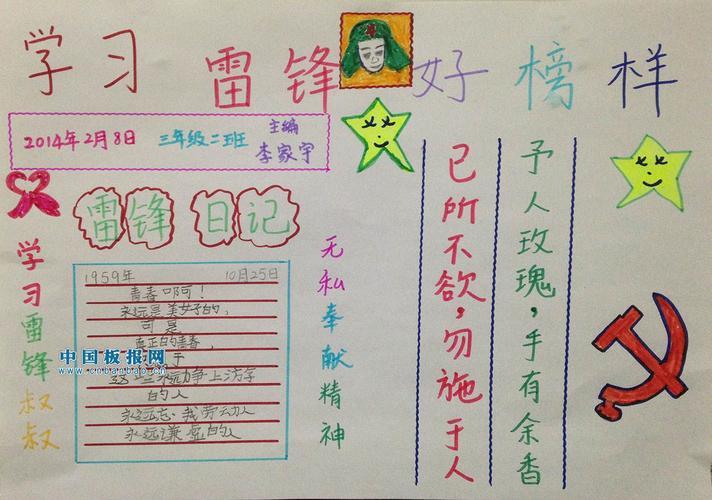 学习雷锋好榜样
2014年2月8日 三年级二班 主编 李家宇
雷锋日记
学习雷锋叔叔
1959年 10月25日
青春啊！
永远是美好的，
可是
真正的青春，
于
永远力争上游
的人
永远忘 我劳动人
永远谦虚的人
中国板报网
www.cnbanbao.cn
无私奉献精神
己所不欲，勿施于人
予人玫瑰，手有余香